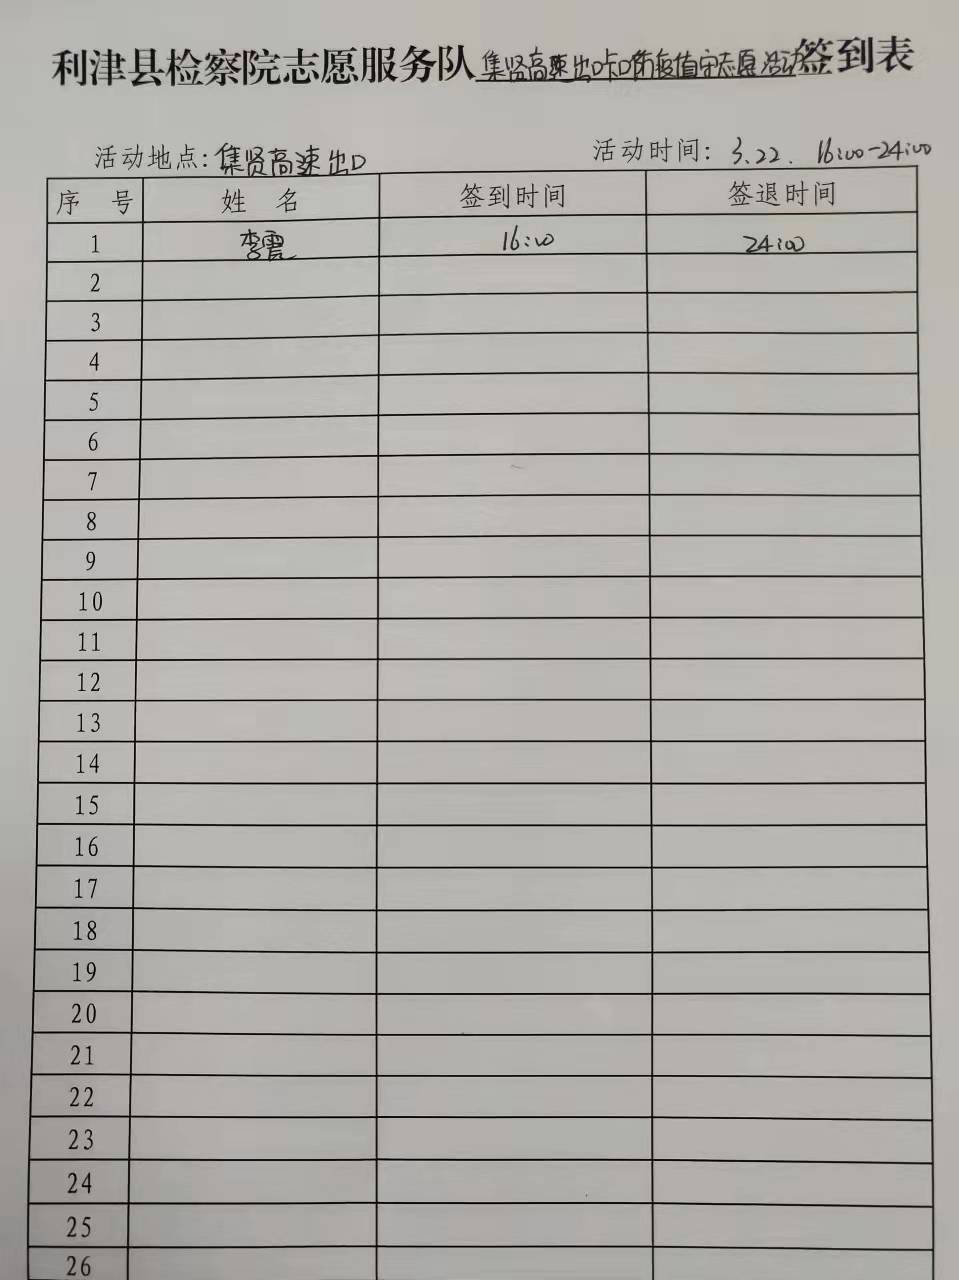 利津县检察院志愿服务队集贤高速出口卡口防疫值守志愿活动签到表
活动地点：集贤高速出口 活动时间：3.22. 16:00-24:00
序 号 姓 名 签到时间 签退时间
1 李 16:00 24:00
2
3
4
5
6
7
8
9
10
11
12
13
14
15
16
17
18
19
20
21
22
23
24
25
26